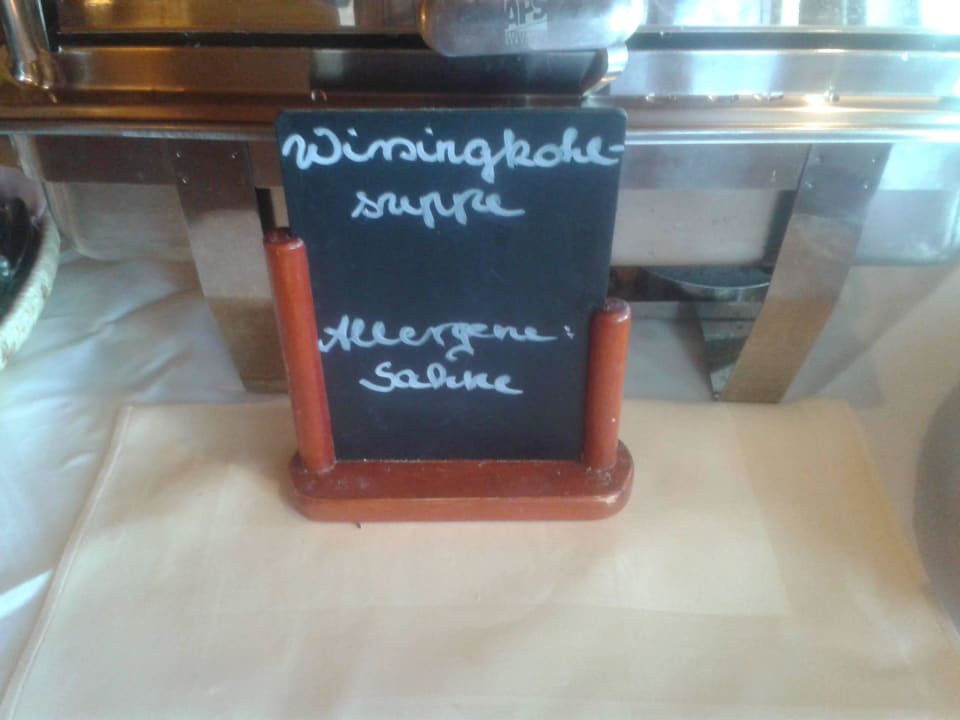 APS
Wirsingkohl-
suppe
Allergene:
Sahne